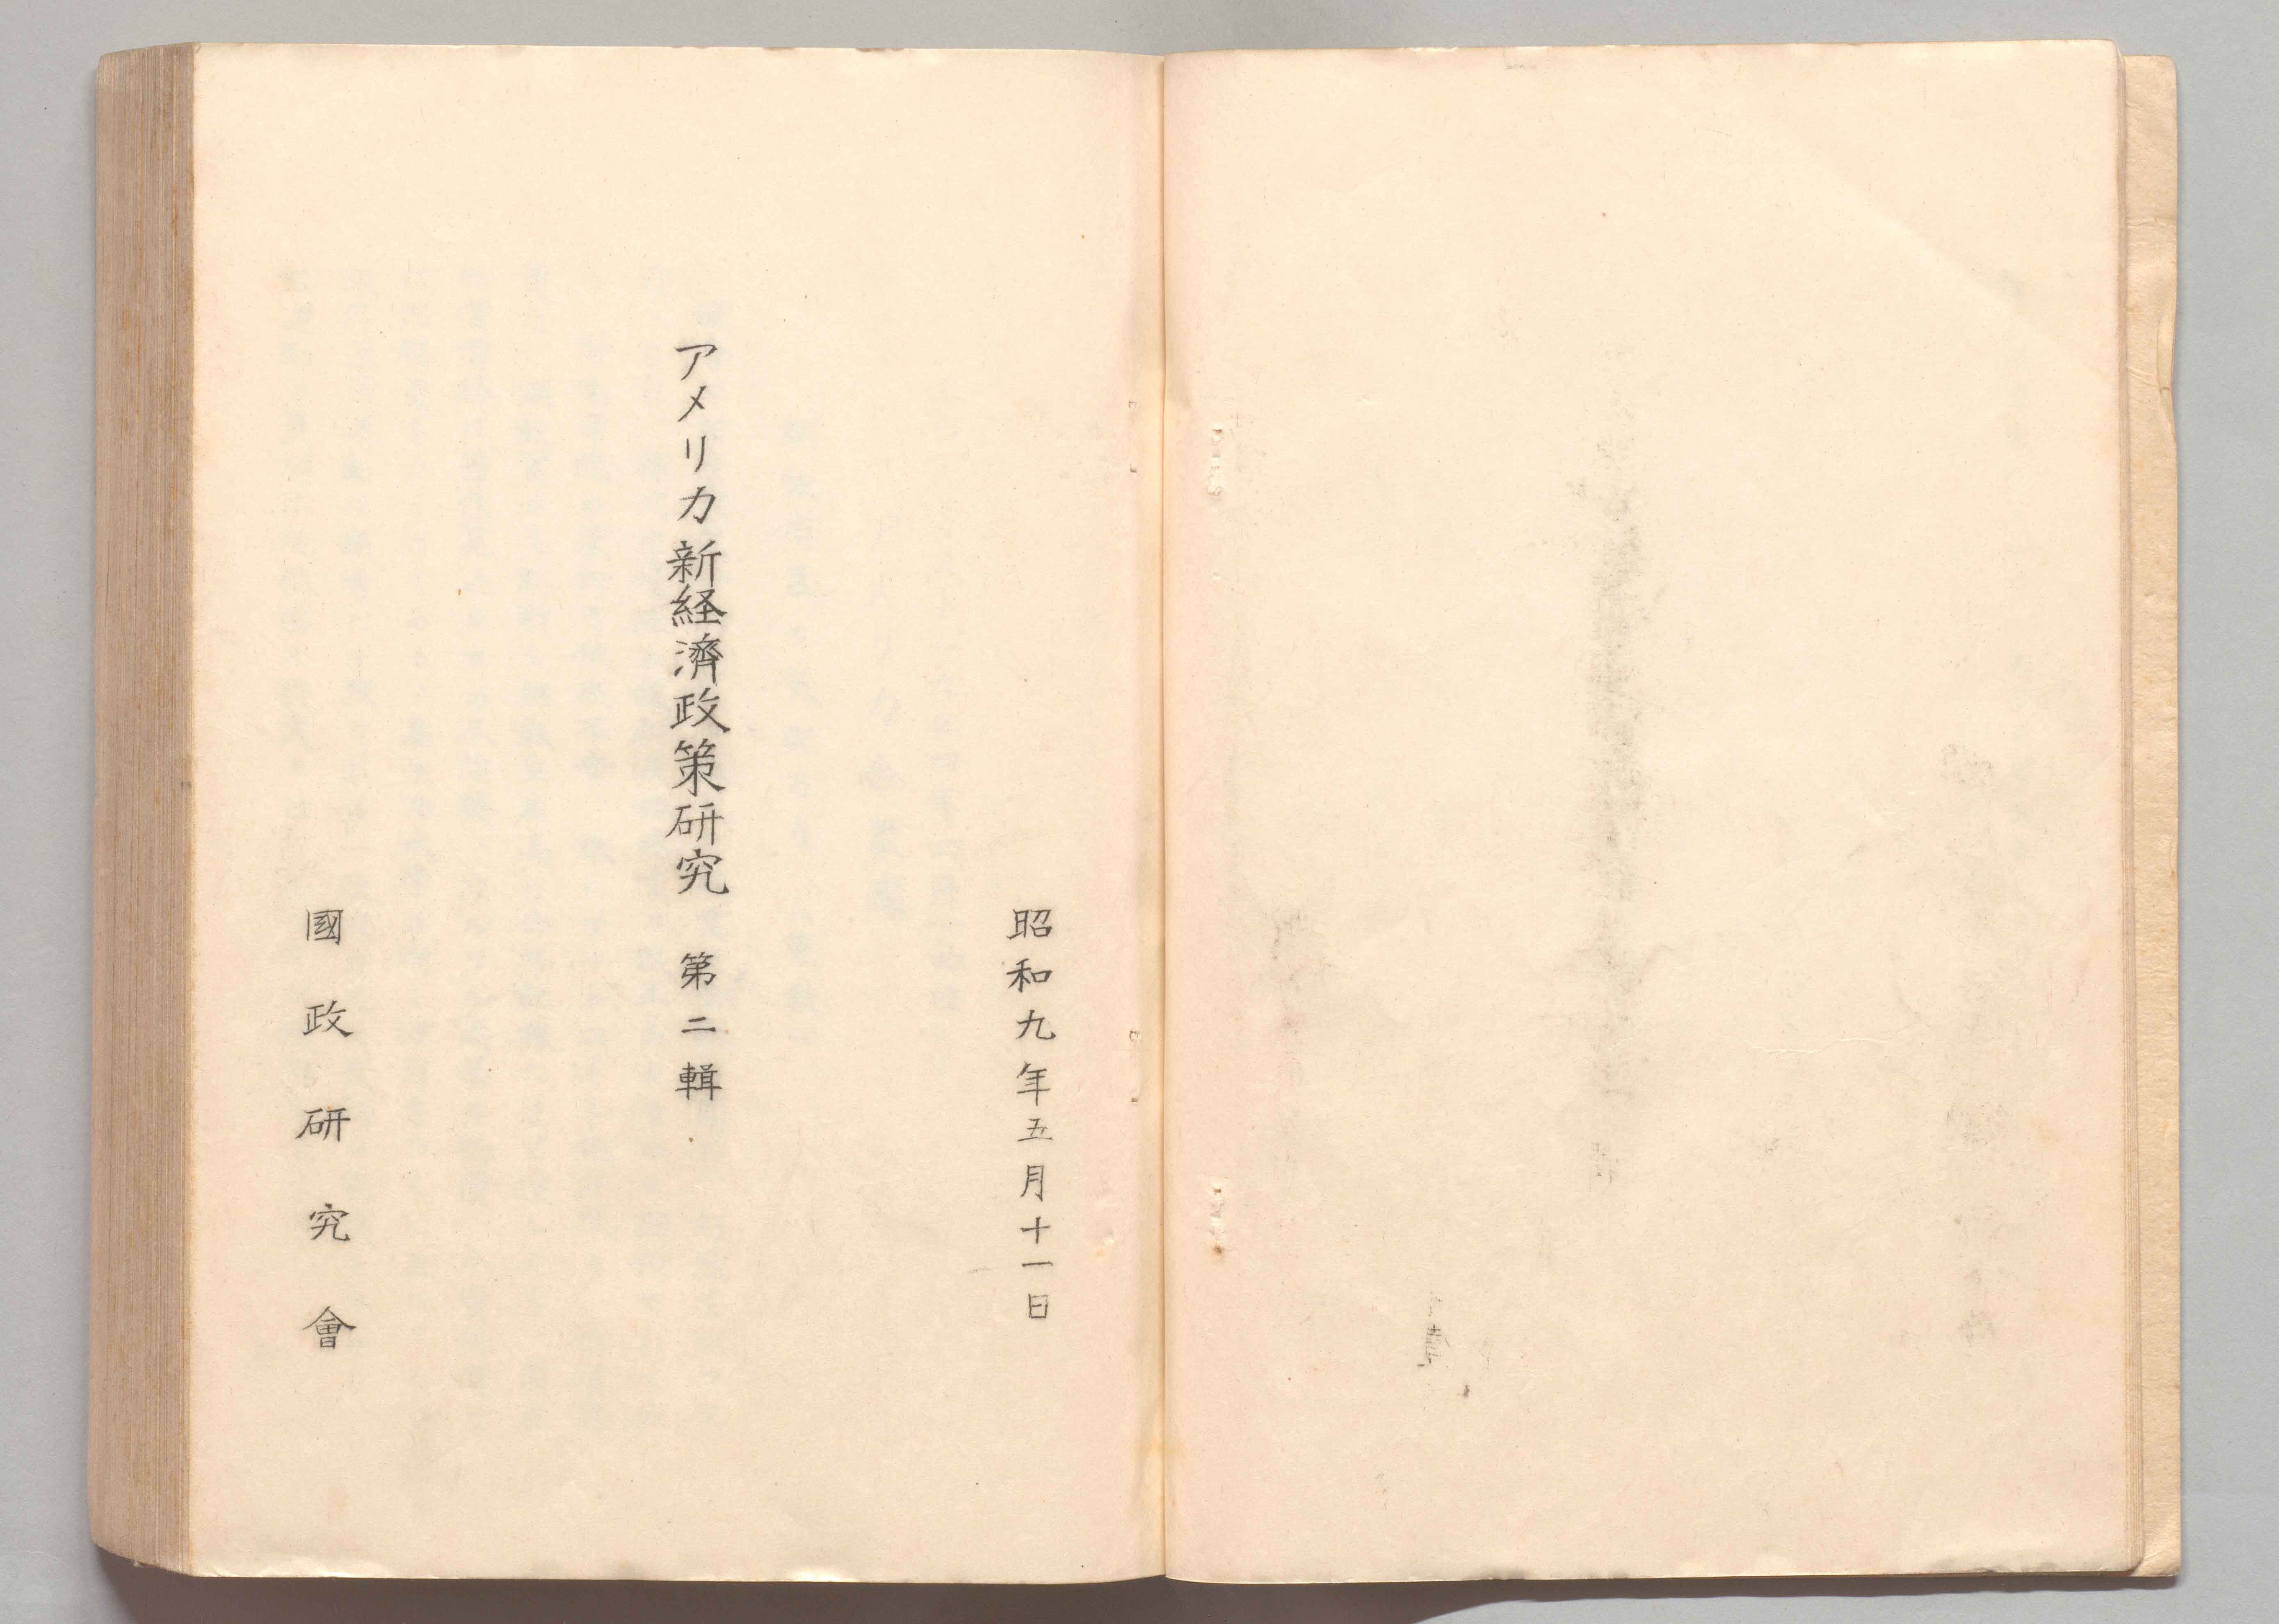 昭和九年五月十一日
アメリカ新経濟政策研究 第二輯
國政研究會